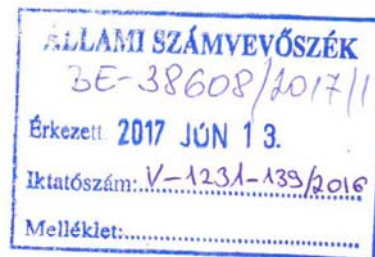 ÁLLAMI SZÁMVEVŐSZÉK
BE-38608/2017/1
Érkezett: 2017 JÚN 13.
Iktatószám: V-1231-139/2016
Melléklet: